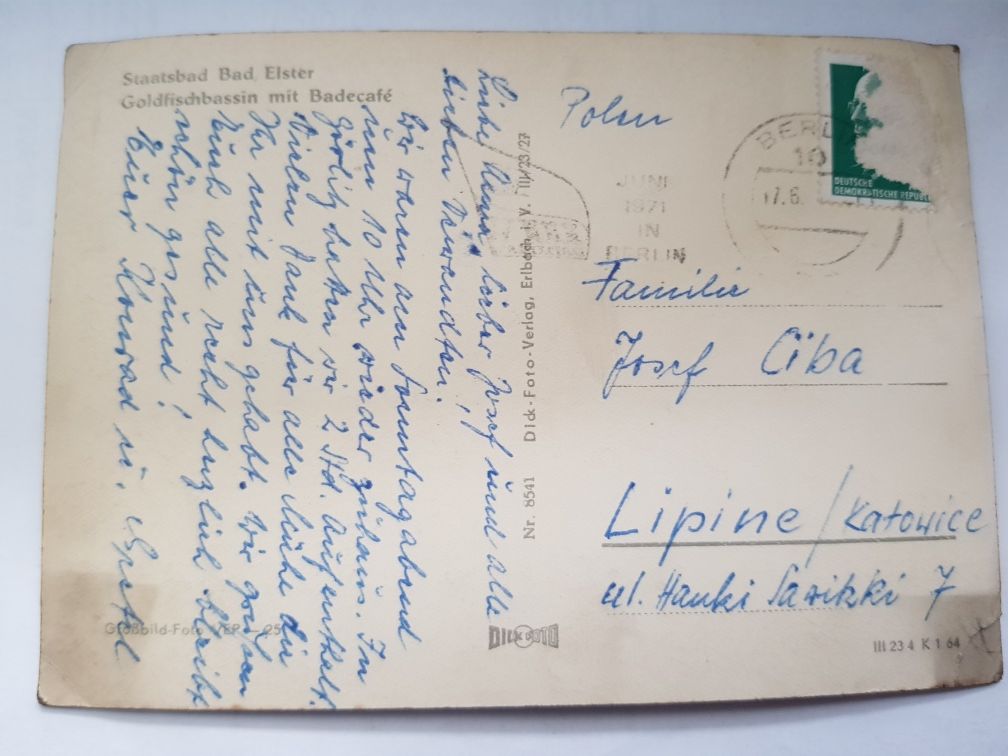 Staatsbad Bad Elster
Goldfischbassin mit Badecafé
Liebe lieber Josef und alle
lieben Verwandten!
Wir waren am Sonntagabend
um 10 Uhr wieder zuhaus. In
Görlitz hatten wir 2 Std. Aufenthalt.
Vielen Dank für alle Mühe die
Ihr mit uns gehabt. Wir grüßen
Euch alle recht herzlich bleibt
schön gesund!
Euer Konrad u. Gretel
Großbild-Foto
Nr. 8541 Dick-Foto-Verlag, Erlbach i. V. III/23/27
DICK FOTO
Polen
JUNI
1971
IN
BERLIN
BERLIN
10
17.6.
DEUTSCHE
DEMOKRATISCHE REPUBL
Familie
Josef Ciba
Lipine / Katowice
ul. Hanki Sawikki 7
III 23 4 K 1 64